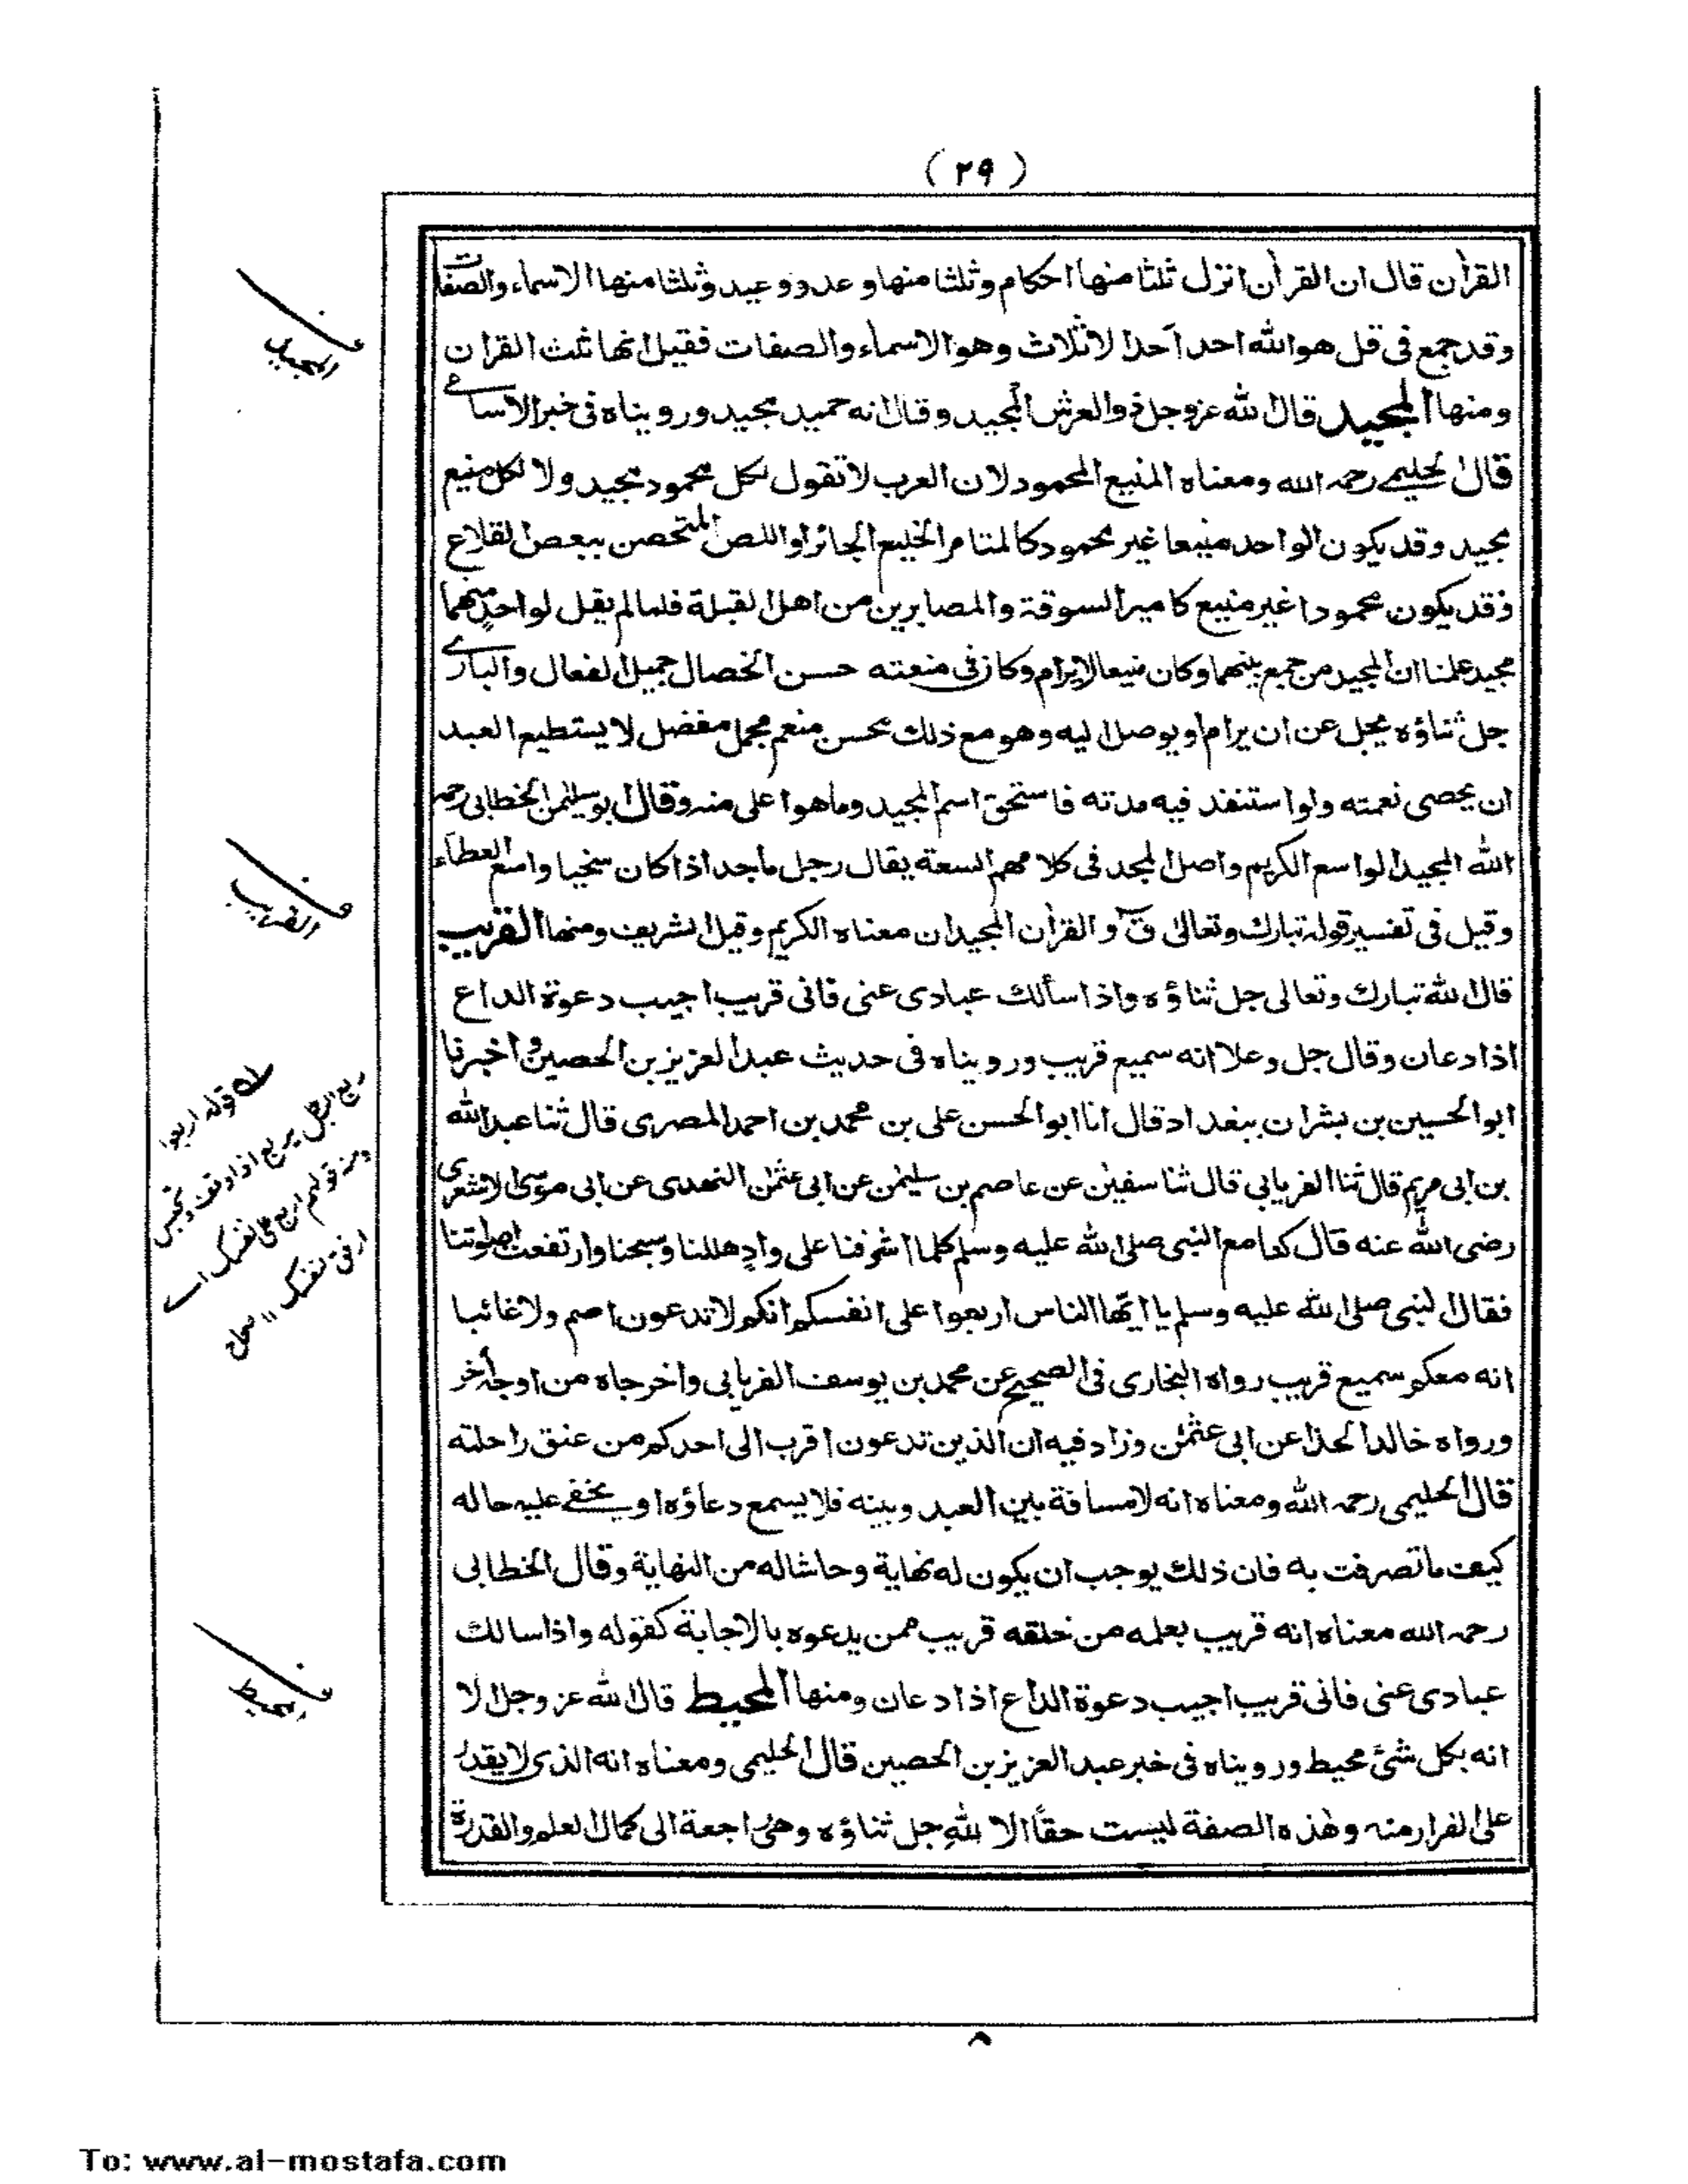 (٢٩)
القرآن قال ان القرآن انزل ثلثا منها احكام وثلثا منها وعد ووعيد وثلثا منها الاسماء والصفات
وقد جمع فى قل هو الله احد احد الاثلاث وهو الاسماء والصفات فقيل انها ثلث القران
ومنها المجيد قال الله عزوجل ذو العرش المجيد وقال انه حميد مجيد ورويناه فى خبر الاسامى
قال الحليمى رحمه الله ومعناه المنيع المحمود لان العرب لا تقول لكل محمود مجيد ولا لكل منيع
مجيد وقد يكون الواحد منيعا غير محمود كالمتامر الخليع الجائر او اللص المتحصن ببعض القلاع
وقد يكون محمودا غير منيع كامير السوقة والمصابرين من اهل القبلة فلما لم يقل لواحدٍ منهما
مجيد علمنا ان المجيد من جمع بينهما وكان منيعا لا يرام وكان فى منعته حسن الخصال جميل الفعال والبارى
جل ثناؤه يجل عن ان يرام او يوصل اليه وهو مع ذلك محسن منعم مجمل مفضل لا يستطيع العبد
ان يحصى نعمته ولو استنفد فيه مدته فاستحق اسم المجيد وما هو اعلى منه وقال ابو سليمن الخطابى رحمه
الله المجيد الواسع الكريم واصل المجد فى كلامهم السعة يقال رجل ماجد اذا كان سخيا واسع العطاء
وقيل فى تفسير قوله تبارك وتعالى قٓ والقرآن المجيد ان معناه الكريم وقيل الشريف ومنها القريب
قال الله تبارك وتعالى جل ثناؤه واذا سألك عبادى عنى فانى قريب اجيب دعوة الداع
اذا دعان وقال جل وعلا انه سميع قريب ورويناه فى حديث عبد العزيز بن الحصين واخبرنا
ابو الحسين بن بشران ببغداد قال انا ابو الحسن على بن محمد بن احمد المصرى قال ثنا عبد الله
بن ابى مريم قال ثنا الفريابى قال ثنا سفيٰن عن عاصم بن سليمٰن عن ابى عثمٰن النهدى عن ابى موسى الاشعرى
رضى الله عنه قال كنا مع النبى صلى الله عليه وسلم كلما اشرفنا على وادٍ هللنا وسبحنا وارتفعت اصواتنا
فقال النبى صلى الله عليه وسلم يا ايها الناس اربعوا على انفسكم انكم لا تدعون اصم ولا غائبا
انه معكم سميع قريب رواه البخارى فى الصحيح عن محمد بن يوسف الفريابى واخرجاه من اوجه أخر
ورواه خالد الحذا عن ابى عثمٰن وزاد فيه ان الذين تدعون اقرب الى احدكم من عنق راحلته
قال الحليمى رحمه الله ومعناه انه لا مسافة بين العبد وبينه فلا يسمع دعاؤه او يخفى عليه حاله
كيف ما تصرفت به فان ذلك يوجب ان يكون له نهاية وحاشا له من النهاية وقال الخطابى
رحمه الله معناه انه قريب بعلمه من خلقه قريب ممن يدعوه بالاجابة كقوله واذا سالك
عبادى عنى فانى قريب اجيب دعوة الداع اذا دعان ومنها المحيط قال الله عز وجل الا
انه بكل شئ محيط ورويناه فى خبر عبد العزيز بن الحصين قال الحليمى ومعناه انه الذى لا يقدر
على الفرار منه وهٰذه الصفة ليست حقًا الا للهِ جل ثناؤه وهى راجعة الى كمال العلم والقدرة
المجيد
القريب
قوله اربعوا
ربع الرجل يربع اذا وقف وتحبس
ومنه قولهم اربع على نفسك اى
ارفق بنفسك ،، صحاح
المحيط
To: www.al-mostafa.com